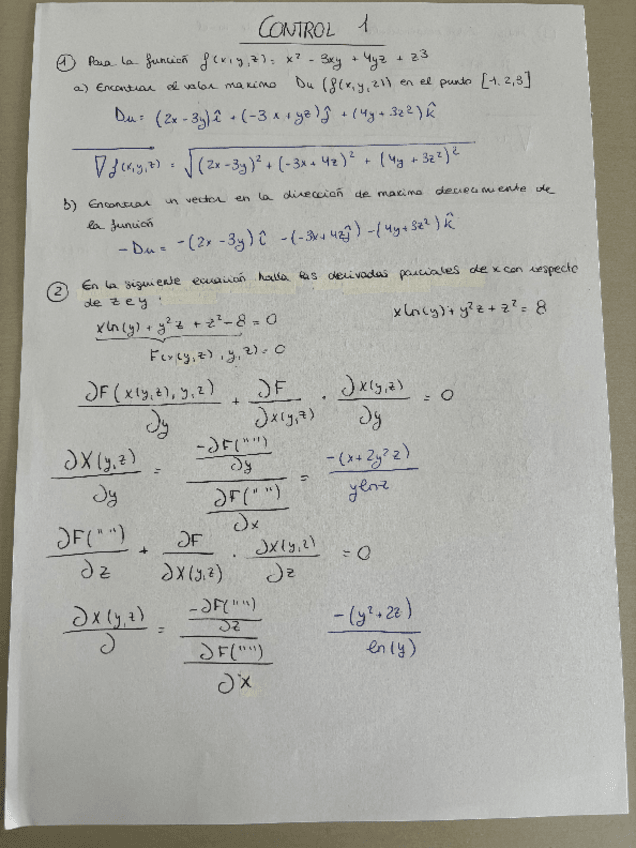 CONTROL 1
① Para la función f(x,y,z) = x² - 3xy + 4yz + z3
a) Encontrar el valor maximo Du (f(x,y,z)) en el punto [-1,2,3]
Du = (2x - 3y)î + (-3x + yz)ĵ + (4y + 3z²)k̂
∇f(x,y,z) = √((2x-3y)² + (-3x+4z)² + (4y+3z²)²)
b) Encontrar un vector en la dirección de maximo decrecimiento de
la función
-Du = -(2x - 3y)î -(-3x+4zĵ) -(4y+3z²)k̂
② En la siguiente ecuación halla las derivadas parciales de x con respecto
de z e y :
xln(y) + y²z + z² - 8 = 0
xln(y) + y²z + z² = 8
F(x(y,z), y, z) = 0
∂F(x(y,z), y, z)/∂y + ∂F/∂x(y,z) · ∂x(y,z)/∂y = 0
∂X(y,z)/∂y = (-∂F("")/∂y)/(∂F("")/∂x) = -(x+2y²z)/(ylnz)
∂F("")/∂z + ∂F/∂X(y,z) · ∂X(y,z)/∂z = 0
∂X(y,z)/∂ = (-∂F("")/∂z)/(∂F("")/∂x) -(y²+2z)/ln(y)